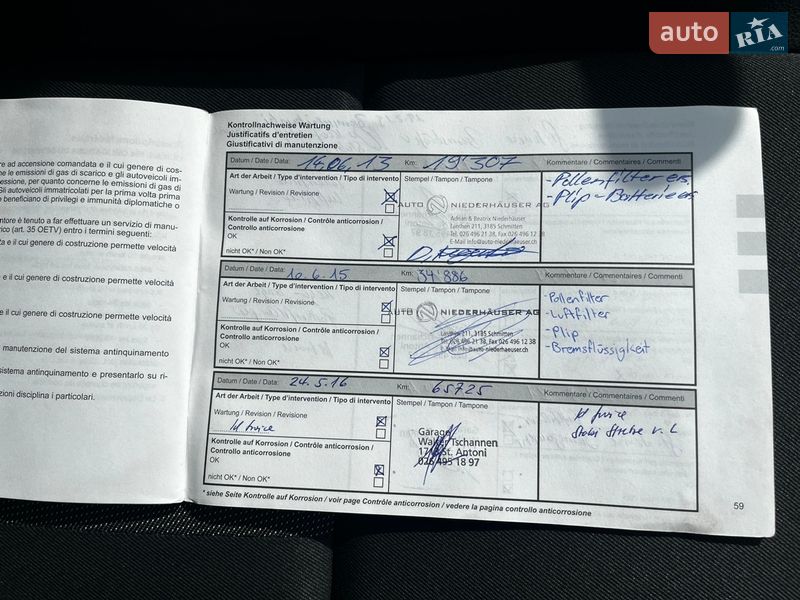 auto RIA .com
re ad accensione comandata e il cui genere di cos-
ne le emissioni di gas di scarico e gli autoveicoli im-
essione, per quanto concerne le emissioni di gas di
Gli autoveicoli immatricolati per la prima volta prima
e beneficiano di privilegi e immunità diplomatiche o
ntore è tenuto a far effettuare un servizio di manu-
rico (art. 35 OETV) entro i termini seguenti:
ta e il cui genere di costruzione permette velocità
e il cui genere di costruzione permette velocità
e il cui genere di costruzione permette velocità
manutenzione del sistema antinquinamento
istema antinquinamento e presentarlo su ri-
zioni disciplina i particolari.
Kontrollnachweise Wartung
Justificatifs d'entretien
Giustificativi di manutenzione
Datum / Date / Data: 14.06.13 Km: 19'307 Kommentare / Commentaires / Commenti
Art der Arbeit / Type d'intervention / Tipo di intervento
Stempel / Tampon / Tampone
- Pollenfilter ers.
Wartung / Révision / Revisione
- Plip-Batterie ers
AUTO NIEDERHÄUSER AG
Adrian & Beatrix Niederhäuser
Lanthen 211, 3185 Schmitten
Tel 026 496 21 38, Fax 026 496 12 38
E-Mail info@auto-niederhaeuser.ch
Kontrolle auf Korrosion / Contrôle anticorrosion /
Controllo anticorrosione
OK
nicht OK* / Non OK*
Datum / Date / Data: 10.6.15 Km: 34'886 Kommentare / Commentaires / Commenti
Art der Arbeit / Type d'intervention / Tipo di intervento
Stempel / Tampon / Tampone
Wartung / Révision / Revisione
AUTO NIEDERHÄUSER AG
Lanthen 211, 3185 Schmitten
Tel 026 496 21 38, Fax 026 496 12 38
E-Mail info@auto-niederhaeuser.ch
- Pollenfilter
- Luftfilter
- Plip
- Bremsflüssigkeit
Kontrolle auf Korrosion / Contrôle anticorrosion /
Controllo anticorrosione
OK
nicht OK* / Non OK*
Datum / Date / Data: 24.5.16 Km: 65725 Kommentare / Commentaires / Commenti
Art der Arbeit / Type d'intervention / Tipo di intervento
Stempel / Tampon / Tampone
Wartung / Révision / Revisione
Garage
Walter Tschannen
1713 St. Antoni
026 495 18 97
Kontrolle auf Korrosion / Contrôle anticorrosion /
Controllo anticorrosione
OK
nicht OK* / Non OK*
* siehe Seite Kontrolle auf Korrosion / voir page Contrôle anticorrosion / vedere la pagina controllo anticorrosione
59